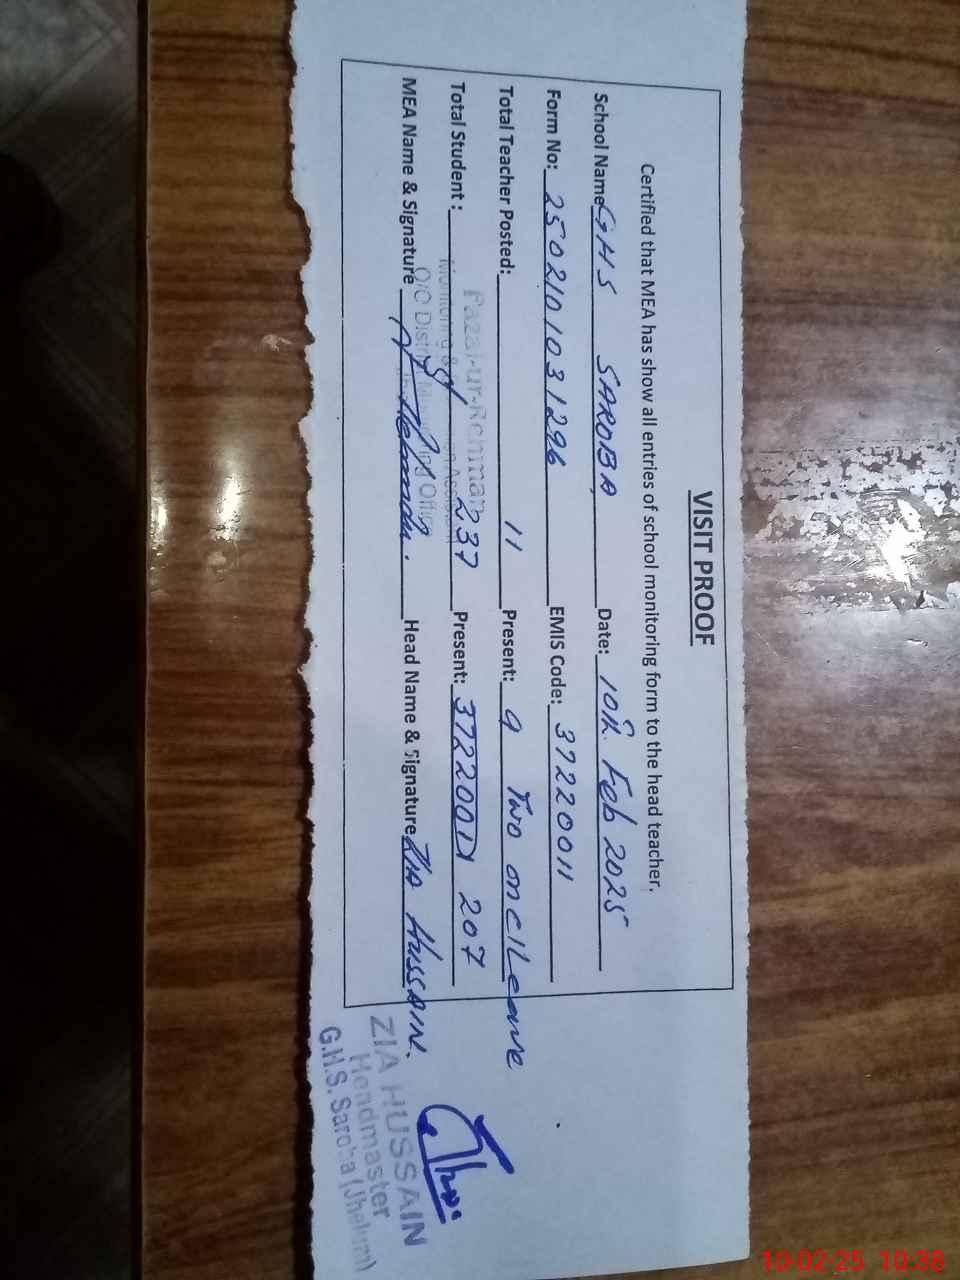 VISIT PROOF
Certified that MEA has show all entries of school monitoring form to the head teacher.
School Name GHS SAROBA Date: 10th Feb 2025
Form No: 2502101031296 EMIS Code: 37220011
Total Teacher Posted: 11 Present: 9 Two on C/Leave
Total Student: 237 Present: 37220011 207
MEA Name & Signature Head Name & Signature Zia Hussain.
Fazal-ur-Rehman
Monitoring &
O/O District Monitoring Office
ZIA HUSSAIN
Headmaster
G.H.S. Saroba (Jhelum)
10-02-25 10:38